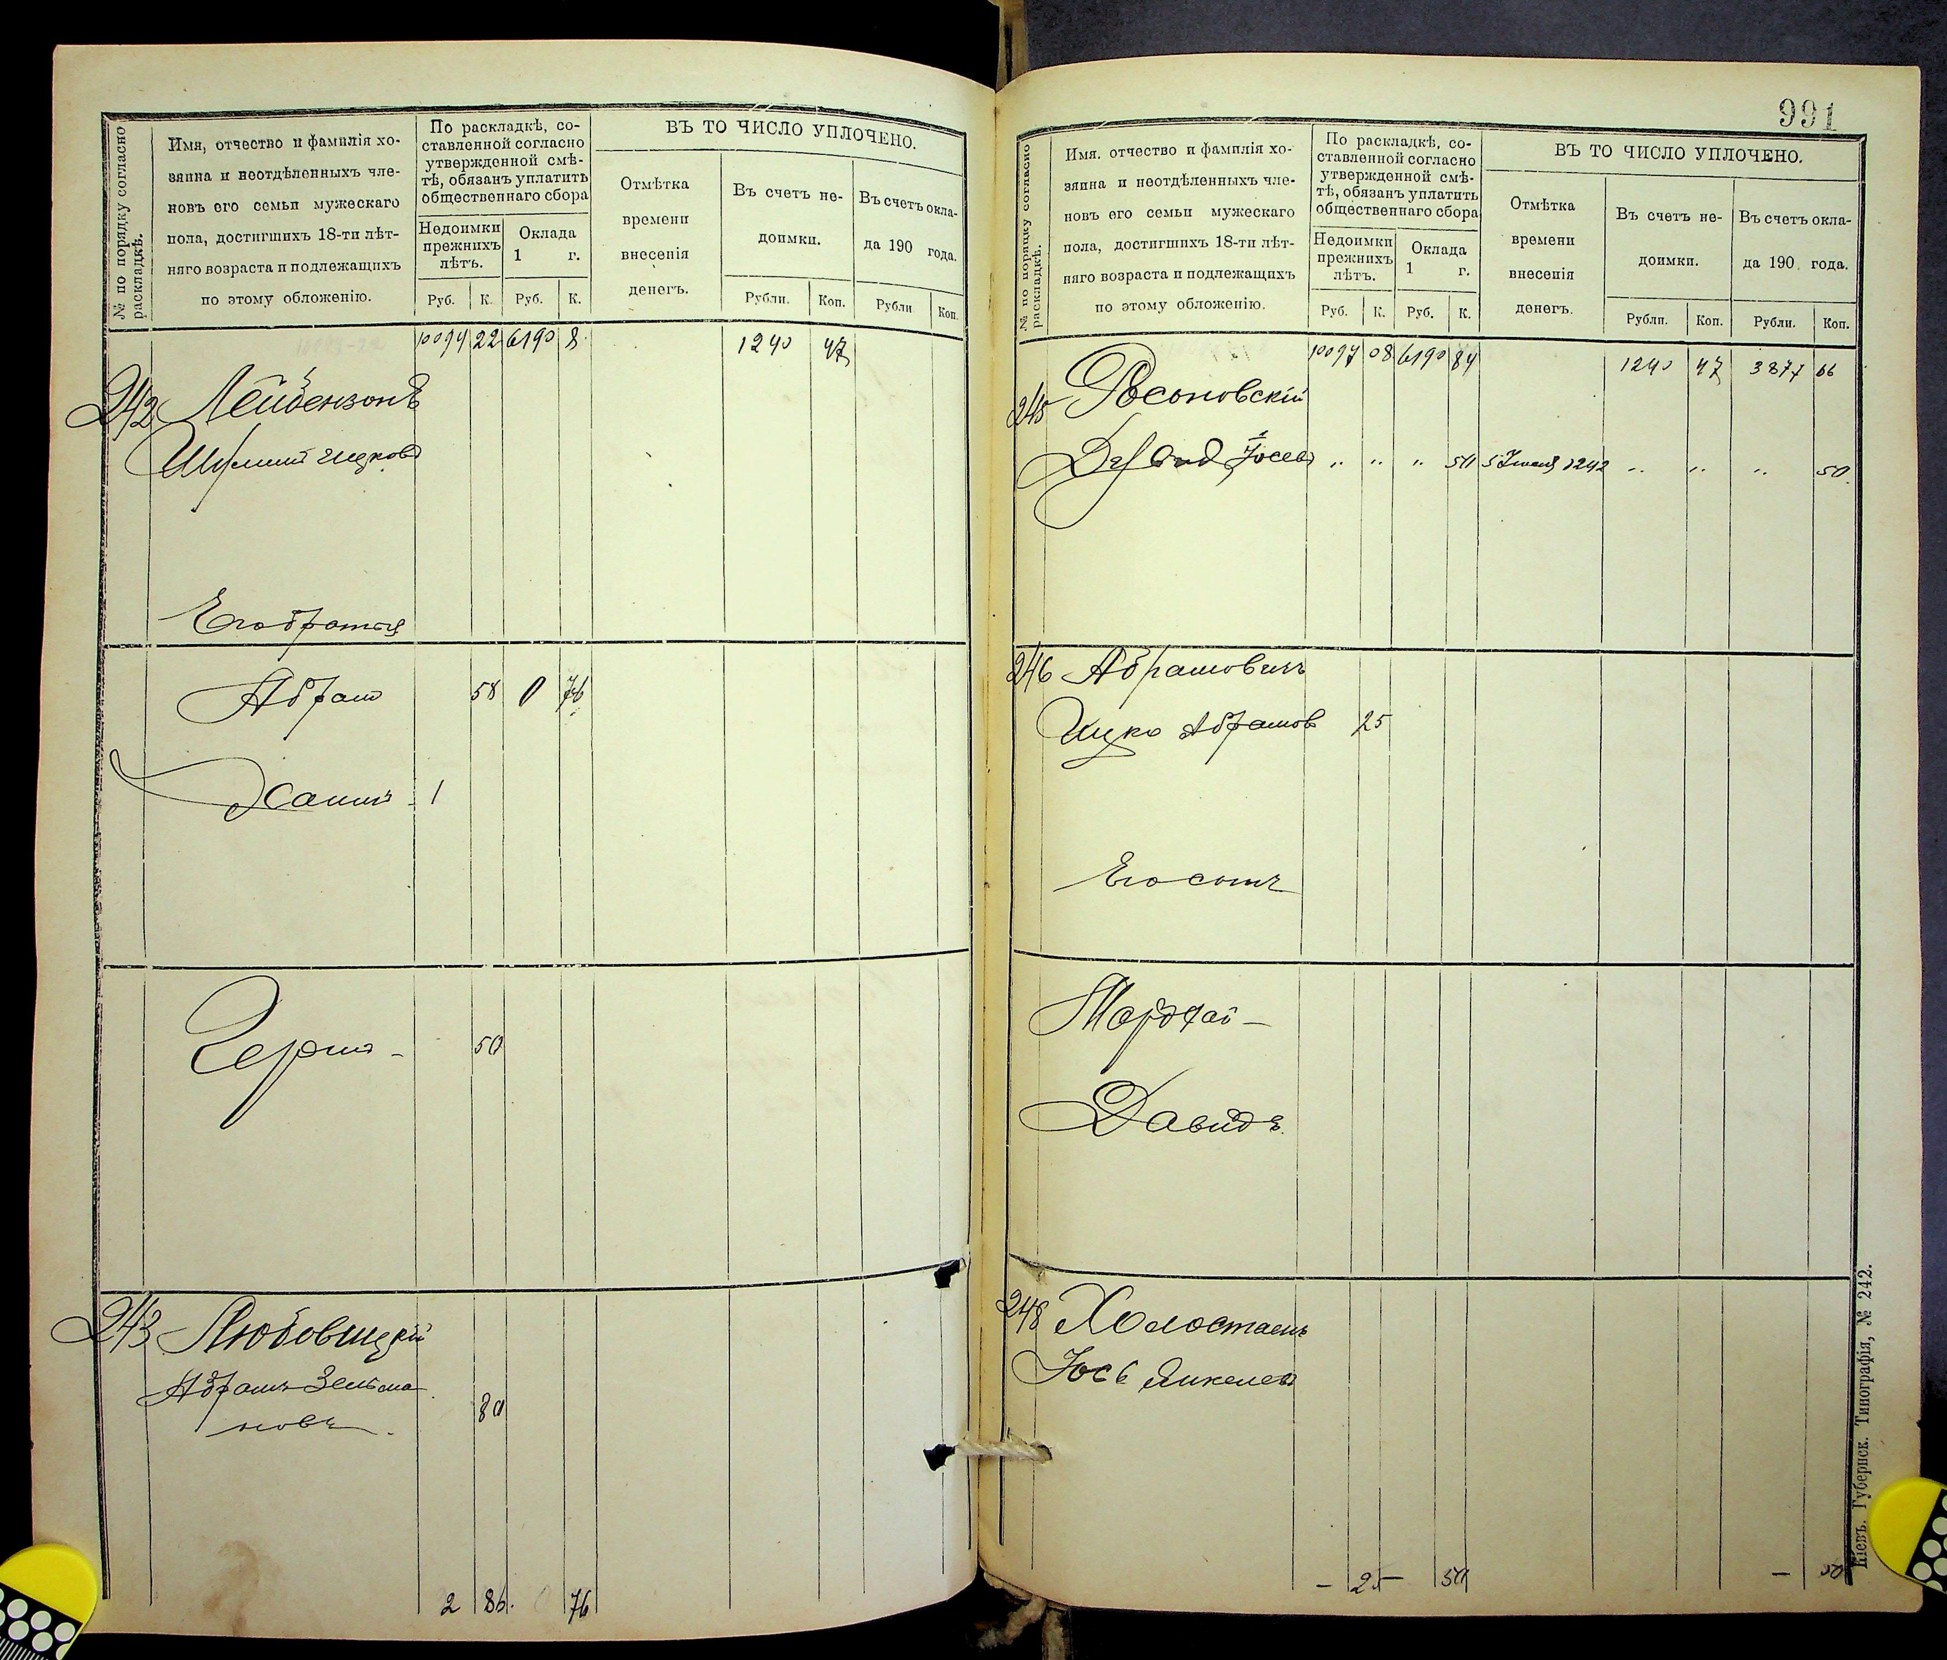 № по порядку согласно раскладкѣ.
Имя, отчество и фамилія хозяина и неотдѣленныхъ членовъ его семьи мужескаго пола, достигшихъ 18-ти лѣтняго возраста и подлежащихъ по этому обложенію.
По раскладкѣ, составленной согласно утвержденной смѣтѣ, обязанъ уплатить общественнаго сбора
Недоимки прежнихъ лѣтъ.
Оклада 1 г.
Руб. К. Руб. К.
ВЪ ТО ЧИСЛО УПЛОЧЕНО.
Отмѣтка времени внесенія денегъ.
Въ счетъ недоимки.
Въ счетъ оклада 190 года.
Рубли. Коп. Рубли Коп.
10094 22 6190 8 1240 47
242 Лейбензонъ
Шулимъ Ицковъ
Его братья
Абрам 58 0 76
Хаимъ - 1
Герш - 50
243 Любовицкій
Абрамъ Зельма
новъ 80
2 86. 76
991
№ по порядку согласно раскладкѣ.
Имя. отчество и фамилія хозяина и неотдѣленныхъ членовъ его семьи мужескаго пола, достигшихъ 18-ти лѣтняго возраста и подлежащихъ по этому обложенію.
По раскладкѣ, составленной согласно утвержденной смѣтѣ, обязанъ уплатить общественнаго сбора
Недоимки прежнихъ лѣтъ.
Оклада 1 г.
Руб. К. Руб. К.
ВЪ ТО ЧИСЛО УПЛОЧЕНО.
Отмѣтка времени внесенія денегъ.
Въ счетъ недоимки.
Въ счетъ оклада 190 года.
Рубли. Коп. Рубли. Коп.
10097 08 6190 84 1240 47 3877 66
245 Росоновскій
Іосев " " " 50 5 1242 " " " 50.
246 Абрамовичъ
Ицко Абрамов 25
Его сынъ
Мордхай -
Давидъ.
248 Холостаемъ
Іось Янкелев
- 25 50 - 50
Кіевъ. Губернск. Типографія, № 242.